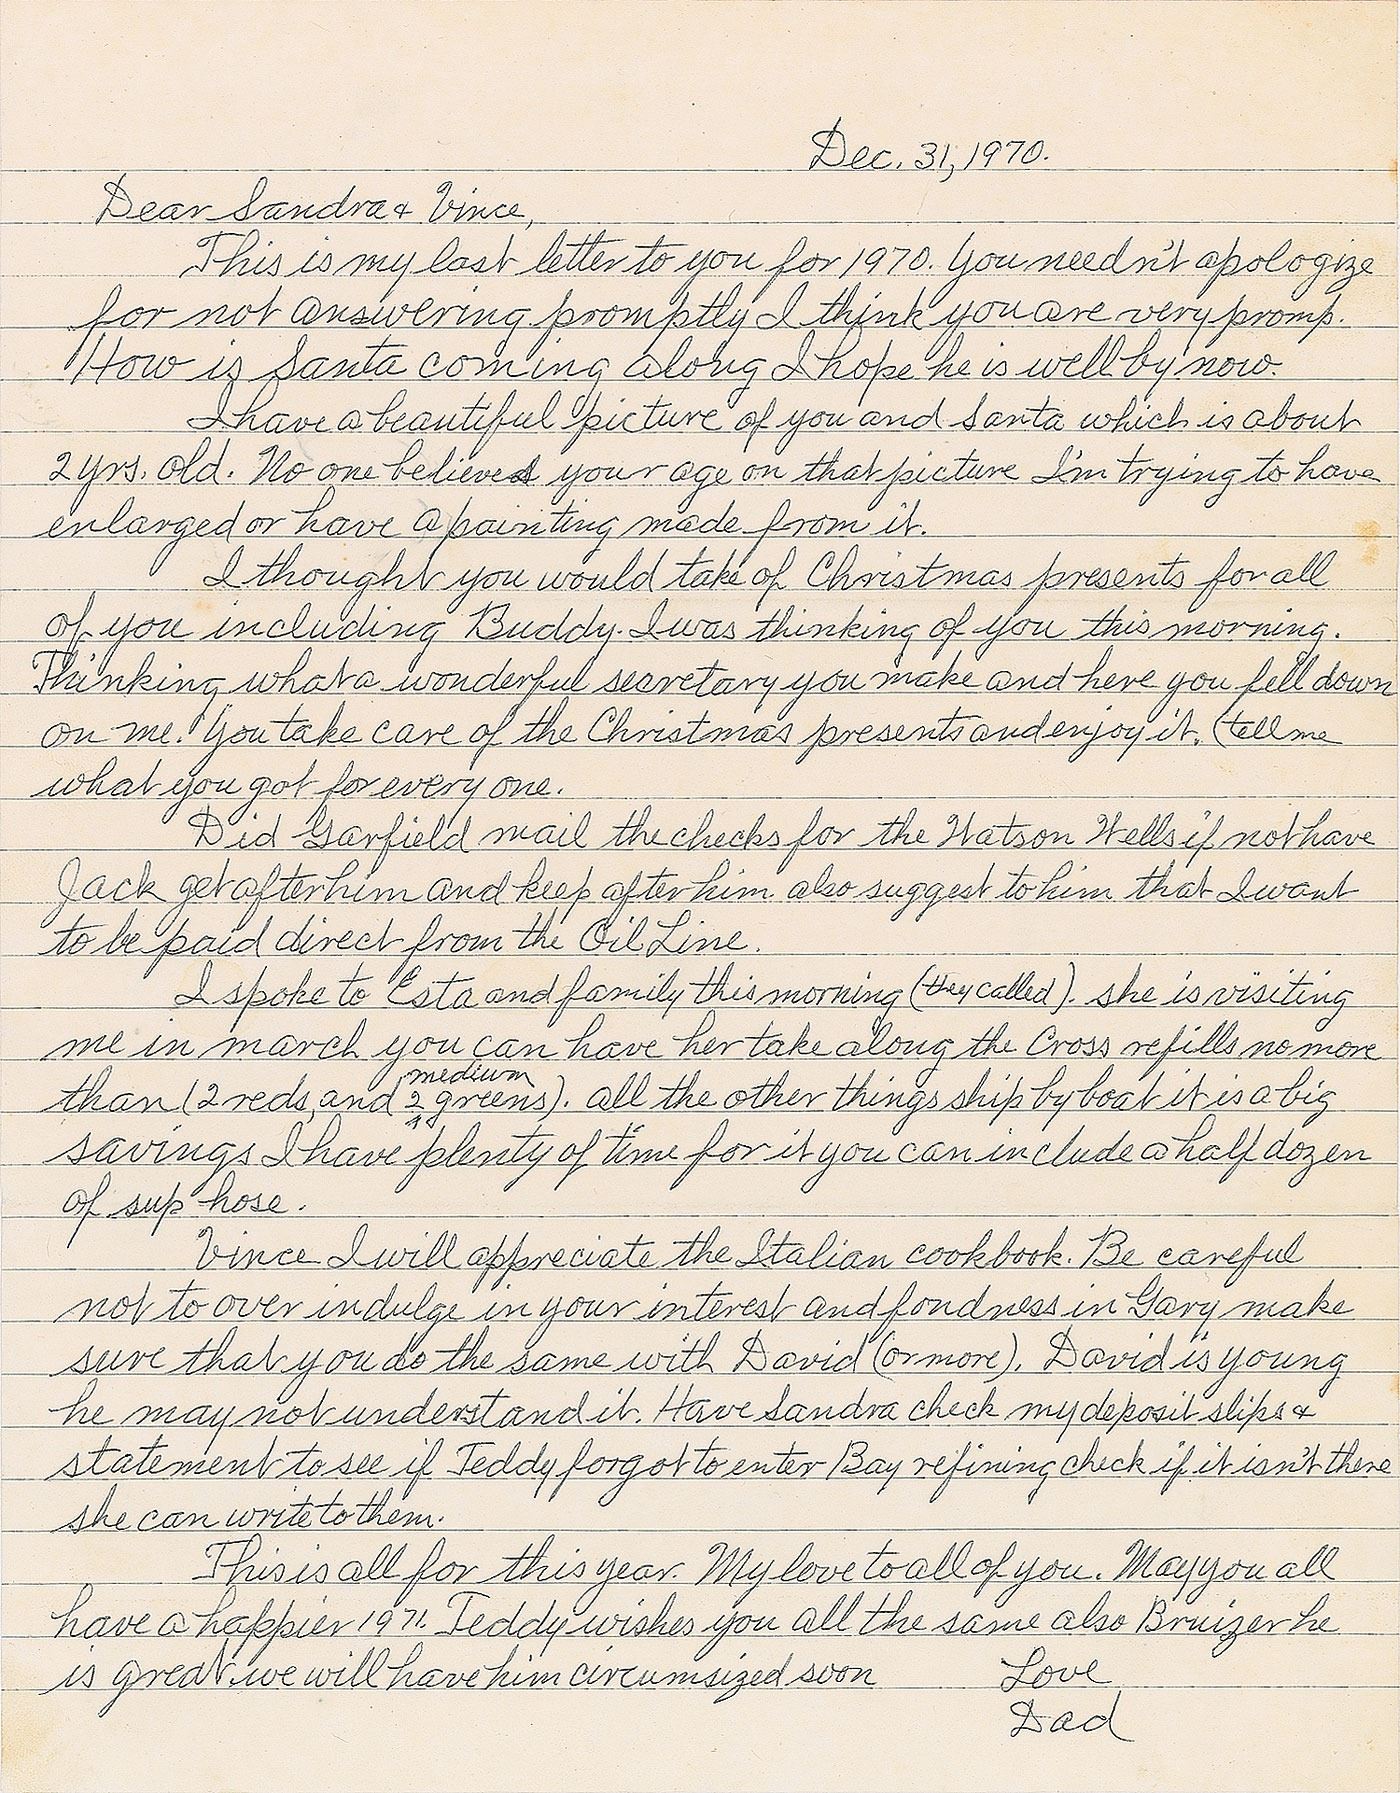 Dec. 31, 1970.
Dear Sandra & Vince,
This is my last letter to you for 1970. You needn't apologize
for not answering promptly I think you are very promp.
How is Santa coming along I hope he is well by now.
I have a beautiful picture of you and Santa which is about
2 yrs. old. No one believes your age on that picture I'm trying to have
enlarged or have a painting made from it.
I thought you would take of Christmas presents for all
of you including Buddy. I was thinking of you this morning.
Thinking what a wonderful secretary you make and here you fell down
on me. You take care of the Christmas presents and enjoy it. (tell me
what you got for every one.
Did Garfield mail the checks for the Watson Wells if not have
Jack get after him and keep after him also suggest to him that I want
to be paid direct from the Oil Line.
I spoke to Esta and family this morning (they called). she is visiting
me in march you can have her take along the Cross refills no more
than (2 reds, and 2 medium greens). all the other things ship by boat it is a big
savings I have plenty of time for it you can include a half dozen
of sup hose.
Vince I will appreciate the Italian cookbook. Be careful
not to over indulge in your interest and fondness in Gary make
sure that you do the same with David (or more). David is young
he may not understand it. Have Sandra check my deposit slips &
statement to see if Teddy forgot to enter Bay refining check if it isn't there
she can write to them.
This is all for this year. My love to all of you. May you all
have a happier 1971. Teddy wishes you all the same also Bruizer he
is great we will have him circumsized soon
Love
Dad